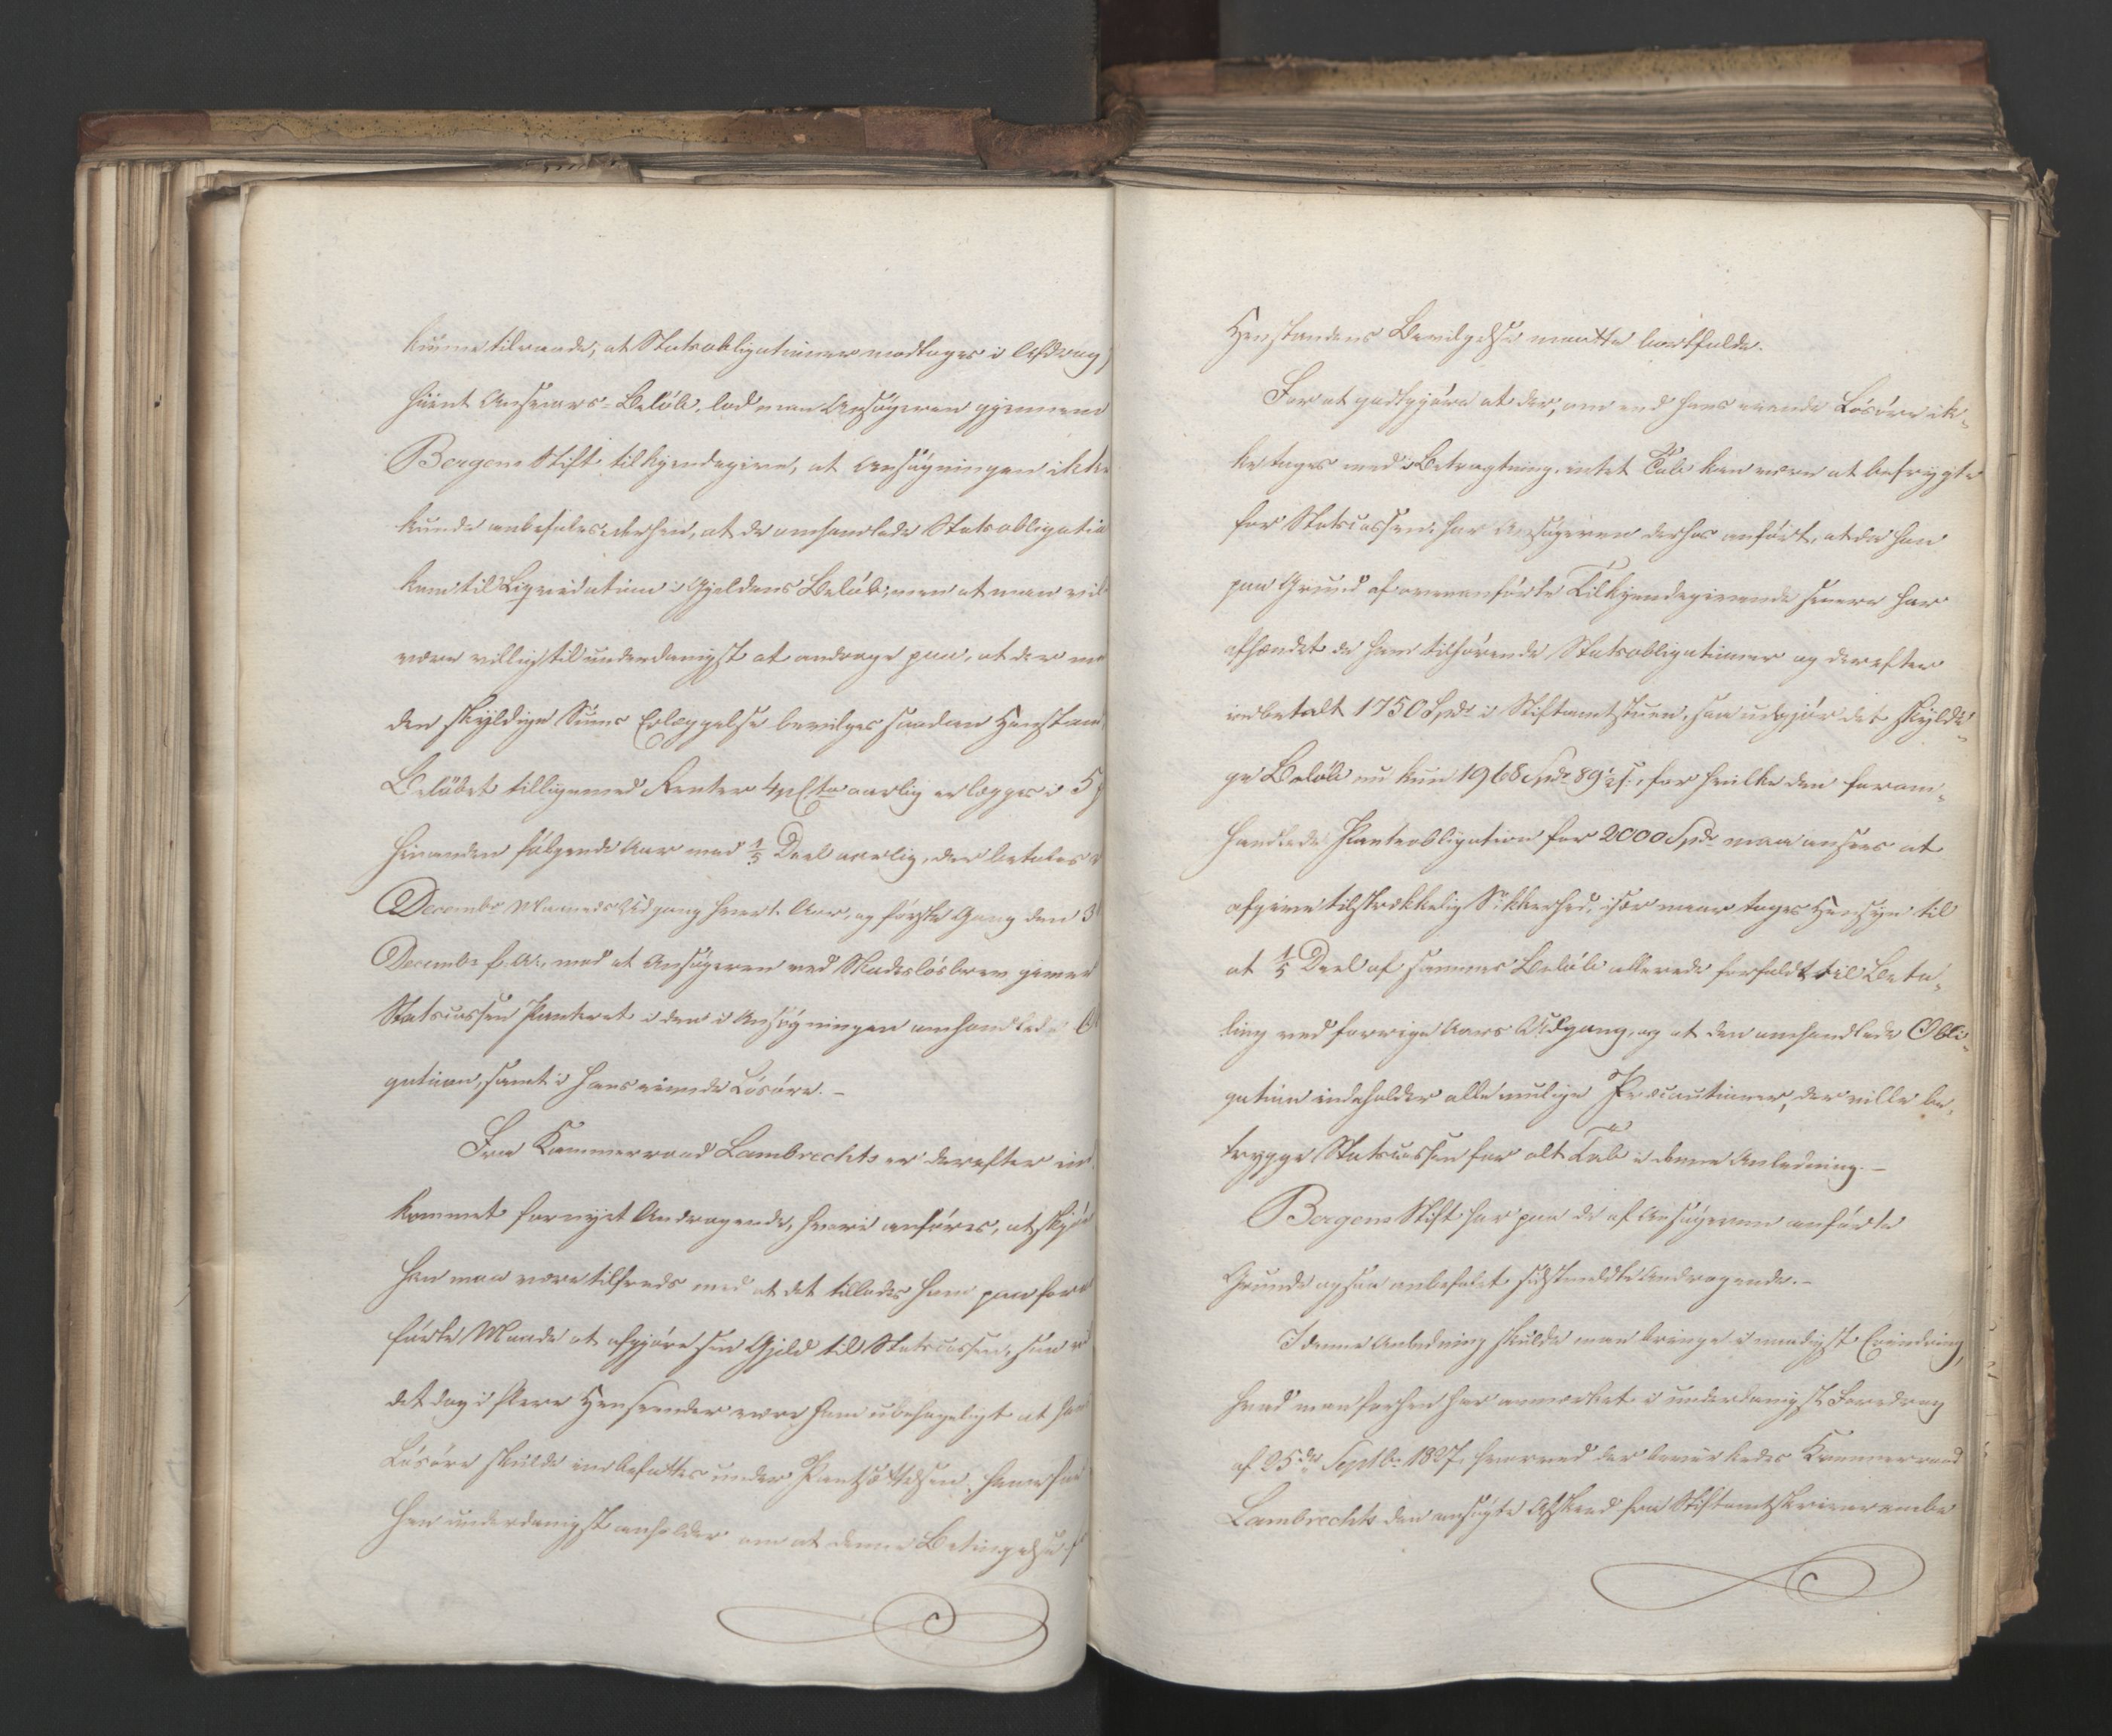 kunne tilraade, at Statsobligationer modtages i Afdrag
hiint Ansvars-Beløb, lod man Ansøgeren gjennem
Bergens Stift tilkjendegive, at Ansøgningen ikke
kunde anbefales derhen, at de omhandlede Statsobligatio
kom til Liqvidation i Gjeldens Beløb, men at man vil
være villig til underdanigst at andrage paa, at der me
den skyldige Sums Erlæggelse bevilges saadan Henstand
Beløbet tilligemed Renter 4 pCto aarlig erlægges i 5
hinanden følgende Aar med 1/5 Deel aarlig, der betales
Decembr Maaneds Udgang hvert Aar, og første Gang den 3
Decembr f. A., mod at Ansøgeren ved Skadesløsbrev giver
Statscassen Panteret i den i Ansøgningen omhandlede
gation, samt i hans eiende Løsøre. –
Fra Kammerraad Lambrechts er derefter ind
kommet fornyet Andragende, hvori anføres, at skjøn
han maa være tilfreds med at det tillades ham paa for
førte Maade at afgjøre sin Gjeld til Statscassen, saa
det dog i flere Henseender være ham ubehageligt at hans
Løsøre skulde indbefattes under Pantsættelsen, hvorfor
han underdanigst anholder om at denne Betingelse
Henstandens Bevilgelse maatte bortfalde.
For at godtgjøre at der, om end hans eiende Løsøre ik-
ke tages med i Betragtning, intet Tab kan være at befrygte
for Statscassen, har Ansøgeren derhos anført, at da han
paa Grund af ovenanførte Tilkjendegivende senere har
afhændet de ham tilhørende Statsobligationer og derefter
indbetalt 1750 Spd i Stiftamtstuen, saa udgjør det skyldi-
ge Beløb nu kun 1968 Spd 89½ s., for hvilke den forom-
handlede Panteobligation for 2000 Spd maa ansees at
afgive tilstrækkelig Sikkerhed, især naar tages Hensyn til
at 1/5 Deel af sammes Beløb allerede forfaldt til Beta-
ling ved forrige Aars Udgang, og at den omhandlede Obli-
gation indeholder alle mulige Præcautioner, der ville be-
trygge Statscassen for alt Tab i denne Anledning. –
Bergens Stift har paa de af Ansøgeren anførte
Grunde ogsaa anbefalet sidstmeldte Andragende. –
I denne Anledning skulde man bringe i naadigst Erindring,
hvad man forhen har anmærket i underdanigst Foredrag
af 25de Septbr 1827, hvorved der bevirkedes Kammerraad
Lambrechts den ansøgte Afsked fra Stiftamtskriverembe